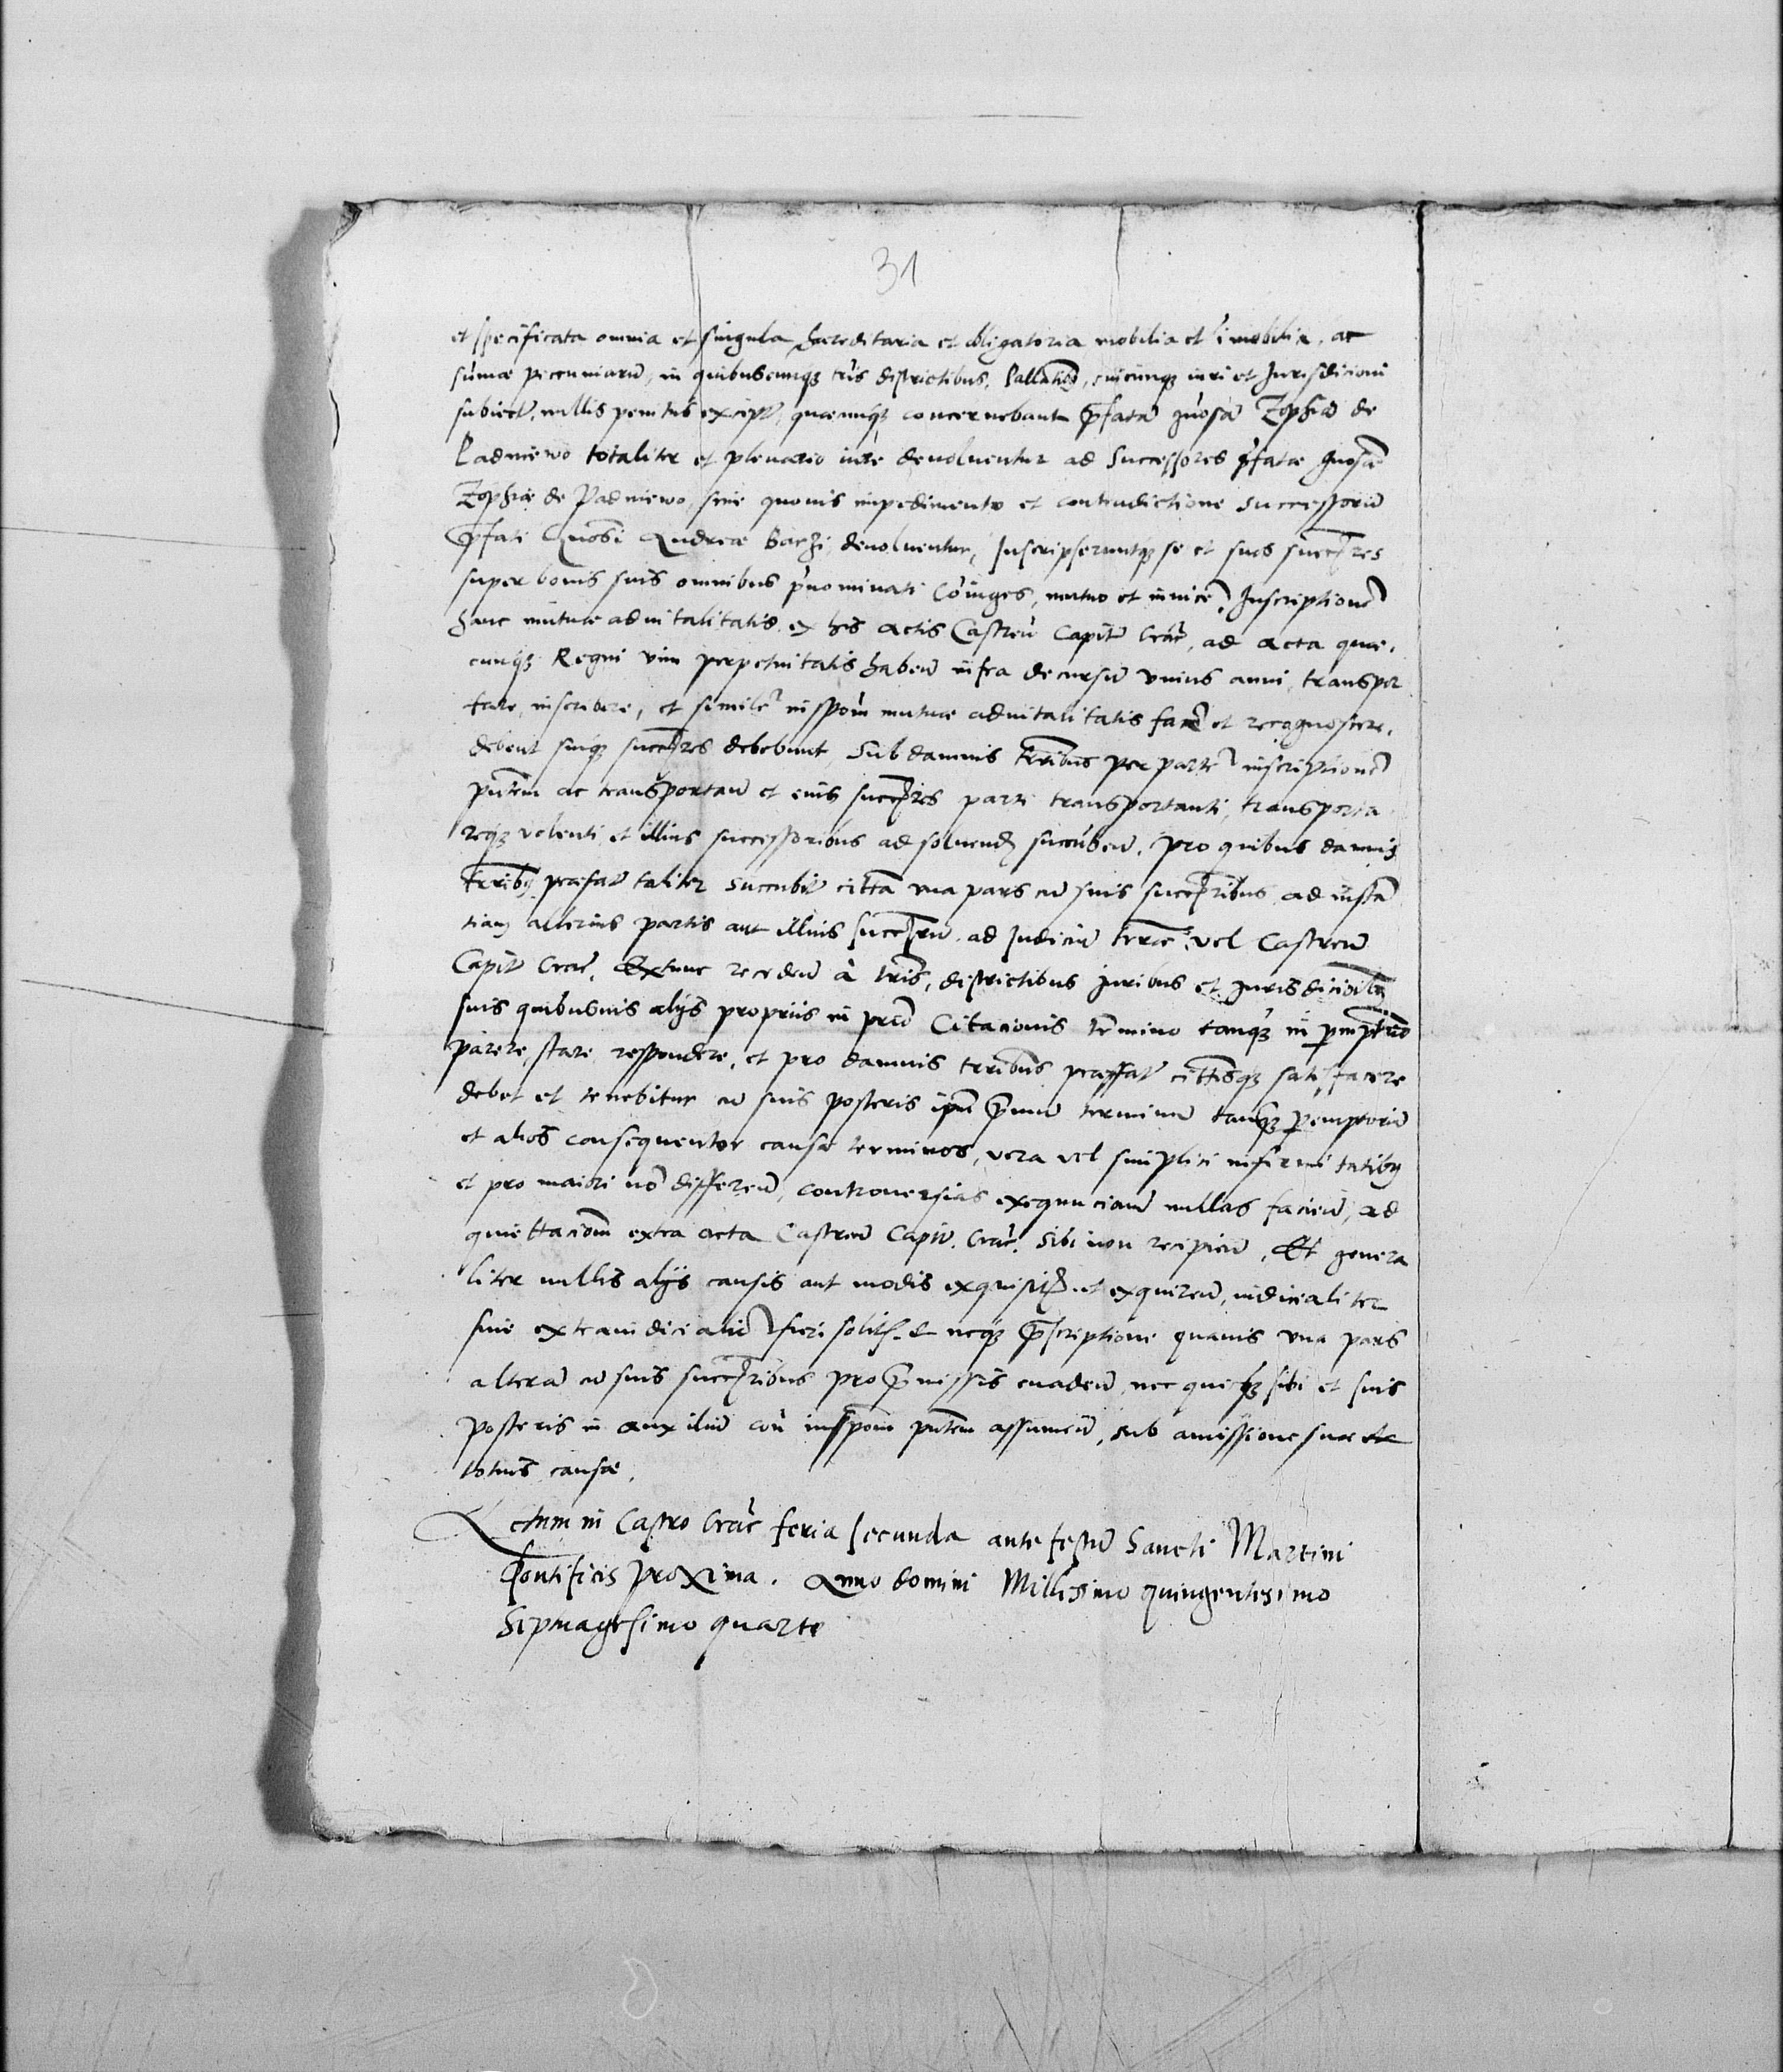 31
et specificata omnia et singula haereditaria et obligatoria mobilia et imobilia, ac
sumae peccuniarū, in quibuscunqz tris districtibus, Pallatīā, cuicunqz iuri et Jurisdicioni
subiect, nullis penitus except, quaecunqz concernebant p̄fatā gnosā Zophiā de
Padniewo totaliter et plenario iure deuoluentur ad Successores p̄fatae gnosae
Zophiae de Padniewo, sine quouis impedimento et contradictione successorū
p̄fati Gnosi Andreae Barzi, deuoluentur, Inscripseruntqz se et suos succ̄res
super bonis suis omnibus p̄nominati Cōiuges, mutuo et inuicē, Inscriptionē
hanc mutuae aduitalitatis ex his actis Castreñ Capit̄ Crac̄, ad acta quae,
cunqz Regni vim perpetuitatis habeñ infra decursū vnius anni, transpor
tare, inscribere, et similē inspōm mutuae aduitalitatis facē et recognoscere,
debent suiqz succ̄res debebunt, Sub damnis trribus per partē inscriptionē
pn̄tem ac transportañ et eius succ̄res parti transportanti, transporta
reqz volenti et illius successoribus ad soluend succubeñ, pro quibus damnis
trribz praefat taliter succubit citta vna pars cū suis succ̄ribus ad instā
tiam alterius partis aut illius succ̄rū, ad Judiciū terrae vel Castreñ
Capit̄ Crac̄, Extunc recedeñ à tris, districtibus Juribus et Jurisdicioībz
suis quibusuis alijs proprijs in prīo Citacionis termino tanqz in p̄emptrio
parere, stare, respondere, et pro damnis trribus praefat cittisqz satisfacere
debet et tenebitur cū suis posteris ipm p̄mum terminū tanqz p̄emptoriū
et alios consequenter causae terminos, vera vel simplici infirmitatibz
et pro maiori nō differeñ, controuersias exequucianū nullas facieñ, ad
quiettacionem extra acta Castreñ Capit̄. Crac̄. sibi non recipieñ, Et genera
liter nullis alijs causis aut modis exquisit et exquireñ, iudicialiter
siue extraiudicialit fieri solit. & neqz p̄scriptione quauis vna pars
alterā cū suis succ̄ribus pro p̄missis euadeñ, nec quicqz sibi et suis
posteris in auxiliū con inspōm pn̄tem assumeñ, sub amissione suae
totius causae,
Actum in Castro Crac̄ feria secunda ante festū Sancti Martini
Pontificis proxima. Anno domini Millesimo quingentesimo
Septuagesimo quarto